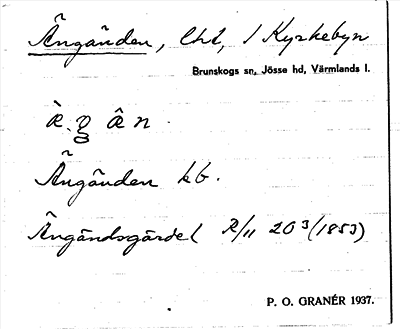 Ängänden, lht, / Kyrkebyn
Brunskogs sn, Jösse hd, Värmlands l.
Ängänden kb.
Ängändsgärdet R/11 20³ (1853)
P. O. GRANÉR 1937.